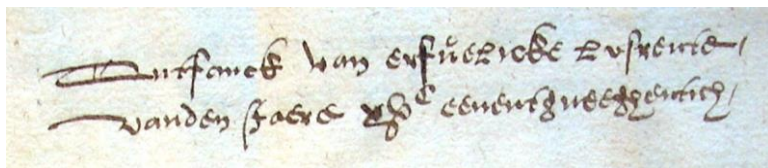 Ontfanck van erfuelicke lysrente
vanden Jaere xvc eenentzneghentich